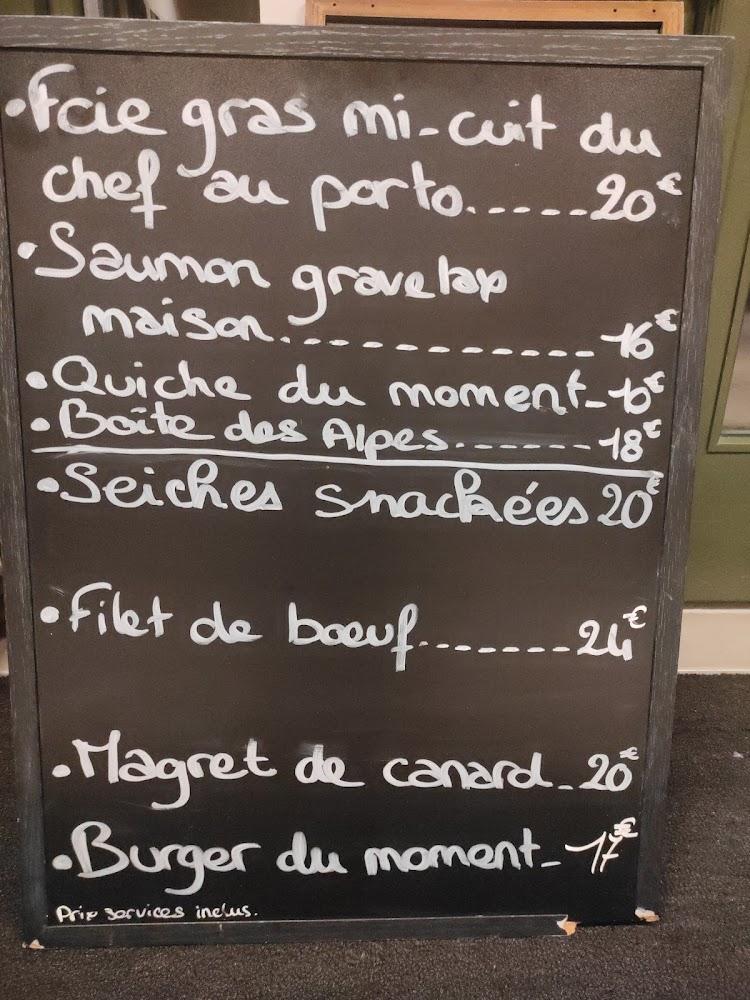 • Foie gras mi-cuit du
chef au porto......20€
• Saumon gravelax
maison..............16€
• Quiche du moment-10€
• Boîte des Alpes.......18€
• Seiches snackées 20€
• Filet de bœuf........24€
• Magret de canard-20€
• Burger du moment-17€
Prix services inclus.